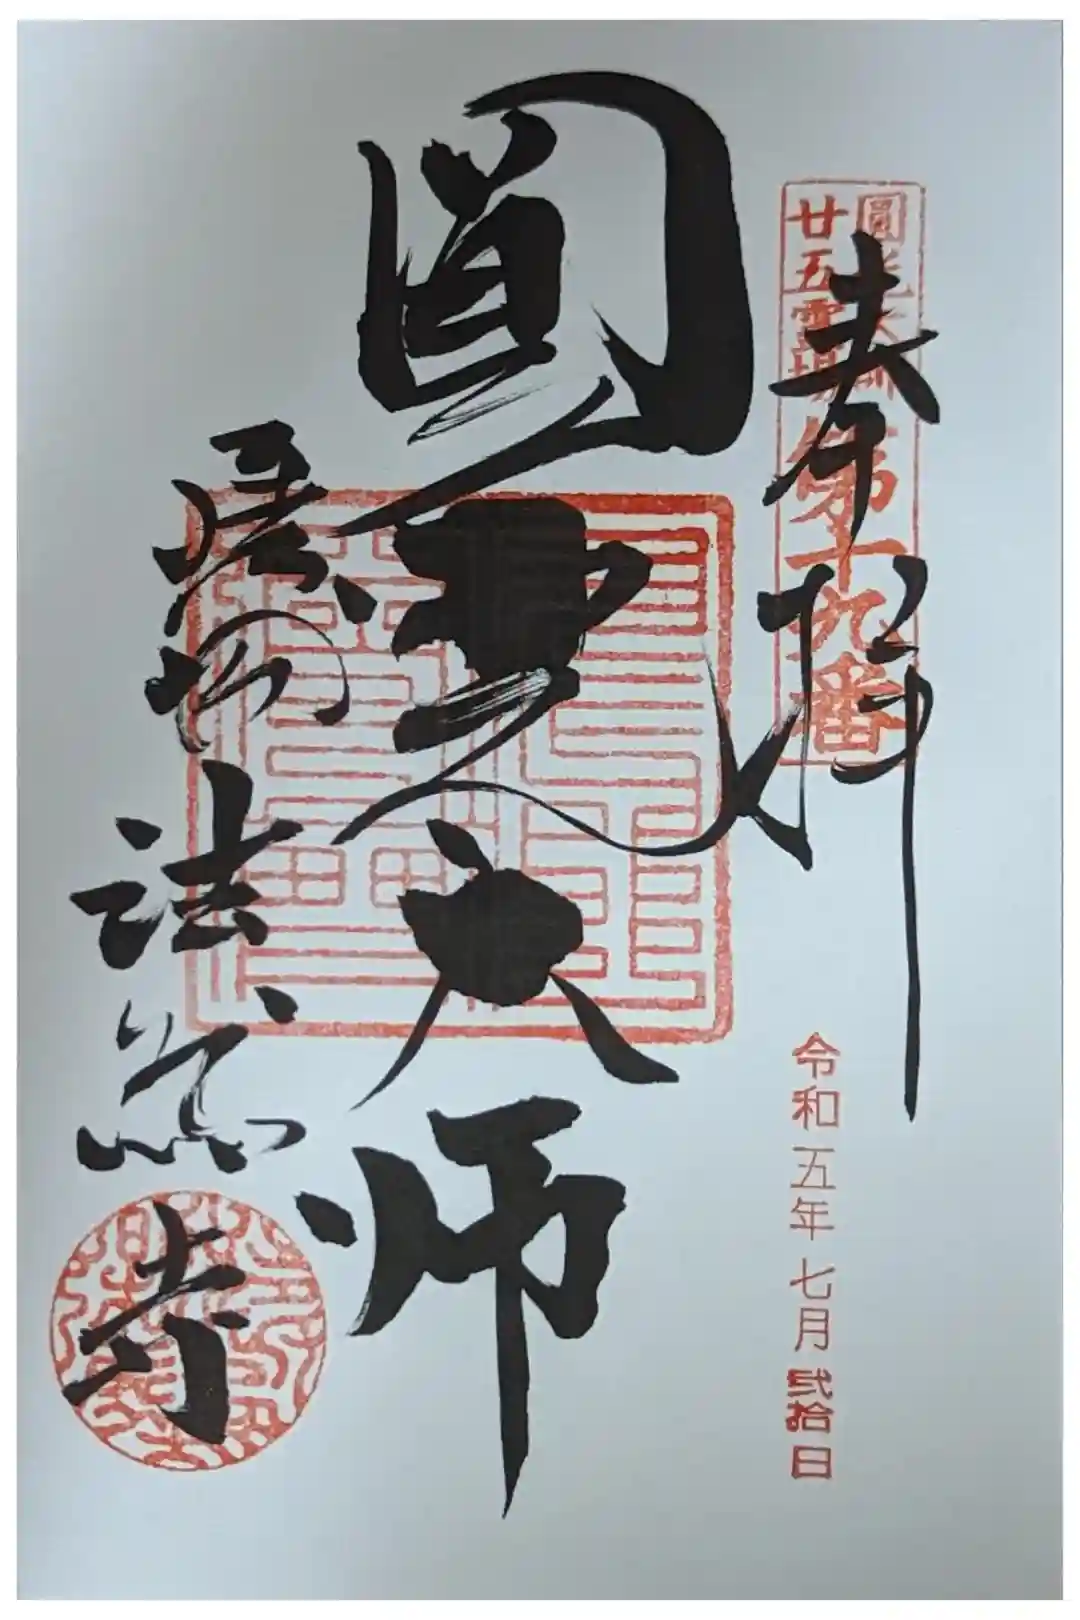 圓光大師
廿五霊場
第十九番
奉拝
令和五年七月弐拾日
圓光大師
法然寺